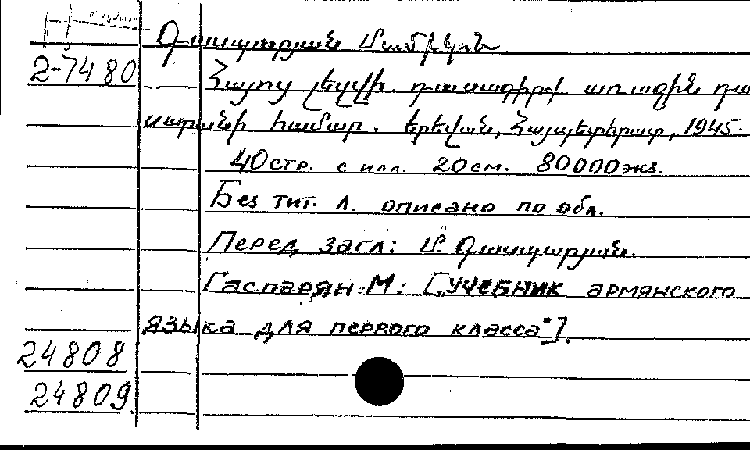 Գասպարյան Մամիկոն
2-7480
Հայոց լեզվի դասագիրք առաջին դա
սարանի համար. Երևան, Հայպետհրատ, 1945.
40стр. с илл. 20см. 80000экз.
Без тит. л. описано по обл.
Перед загл: Մ Գասպարյան.
Гаспарян М: ["Учебник армянского
языка для первого класса"].
24808
24809